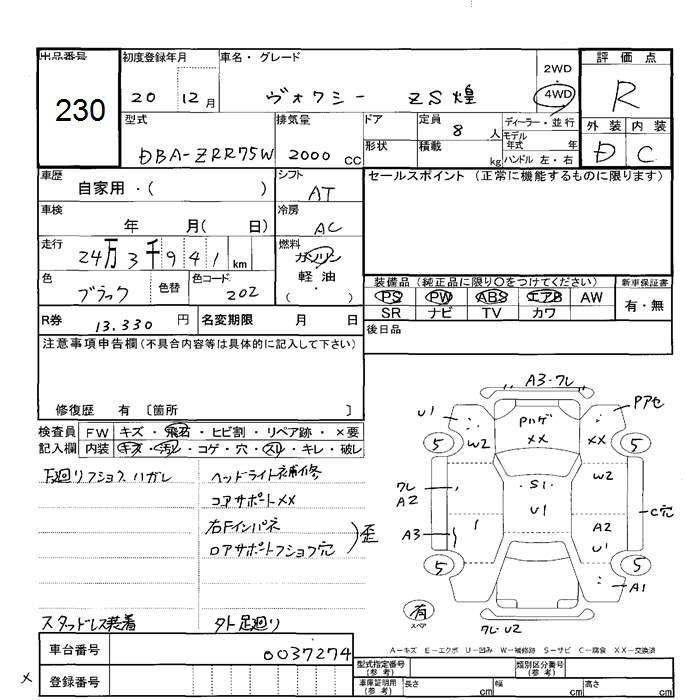 出品番号 初度登録年月 車名・グレード 2WD 4WD 評価点
230
20 12月 ヴォクシー ZS煌 R
型式 排気量 ドア 定員 8人 ディーラー・並行 外装 内装
モデル年式 年
DBA-ZRR75W 2000cc 形状 積載 kg ハンドル 左・右 D C
車歴 自家用・( ) シフト AT セールスポイント (正常に機能するものに限ります)
車検 年 月( 日) 冷房 AC
走行 24万3千941km 燃料 ガソリン
軽・油
( ・ )
色 ブラック 色替 色コード 202
装備品 (純正品に限り○をつけてください) 新車保証書
PS PW ABS エアB AW 有・無
SR ナビ TV カワ
R券 13.330円 名変期限 月 日 後日品
注意事項申告欄(不具合内容等は具体的に記入して下さい)
修復歴 有 〔箇所 〕
検査員 FW キズ・飛石・ヒビ割・リペア跡・×要
記入欄 内装 キズ・汚レ・コゲ・穴・スレ・キレ・破レ
下廻りフショク、ハガレ
ヘッドライト補修
コアサポートXX
右Fインパネ
ロアサポートフショク穴
歪
スタッドレス装着 タト足廻り
A3・ワレ
U1
Pハゲ
XX
Pアセ
W2
XX
5
5
ワレ
A2
S1
U1
W2
C穴
A3
A2
U1
5
5
A1
有
スペア
ワレ・U2
A-キズ E-エクボ U-凹み W-補修跡 S-サビ C-腐食 XX-交換済
車台番号 0037274
登録番号
型式指定番号(参考) 類別区分番号(参考)
車庫証明用(参考) 長さ cm 幅 cm 高さ cm
×